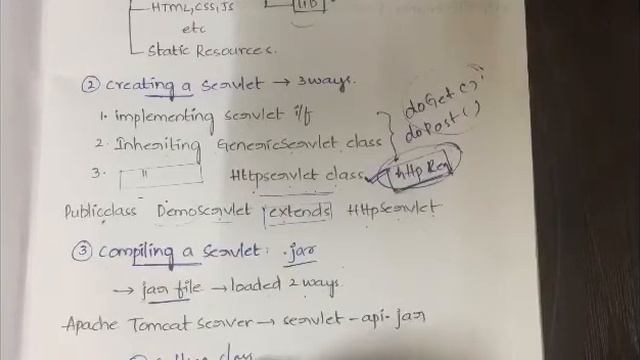 HTML, CSS, JS
lib
etc
Static Resources.
② Creating a Servlet → 3 ways.
1. implementing servlet i/f
doGet()
doPost()
2. Inheriting GenericServlet class
3. " Httpservlet class
http Req
Publicclass Demoservlet extends HttpServlet
③ Compiling a Servlet: .jar
→ jar file → loaded 2 ways.
Apache Tomcat Server → servlet-api.jar